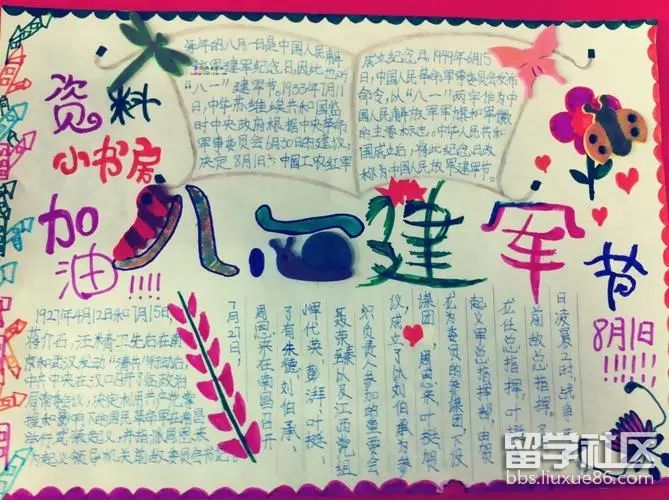 资料
小书房
加油!!!!
每年的八月一日是中国人民解
放军建军纪念日,因此也叫
“八一”建军节。1933年7月11
日,中华苏维埃共和国临
时中央政府根据中央革命
军事委员会6月30日的建议,
决定8月1日为中国工农红军
成立纪念日。1949年6月15
日,中国人民革命军事委员会发布
命令,以“八一”两字作为中
国人民解放军军旗和军徽
的主要标志。中华人民共和
国成立后,将此纪念日改
称为中国人民放军建军节。
八.一建军节
8月1日
!!!!!!
1927年4月12日和7月15日,
蒋介石,汪精卫先后在南
京和武汉发动
行动后,
中共中央在汉口召开了临政治
7月27日,
周恩来在南昌召开
了有朱德、刘伯承、
恽代英、彭湃、叶挺、
聂荣臻以及江西党组
织负责人参加的重要会
议,成立了以刘伯承为参
谋团,
周恩来、叶挺
起义军总指挥部,
任总指挥,叶挺
前敌总指挥。
日凌晨2时,战争
留学社区
bbs.liuxue86.com